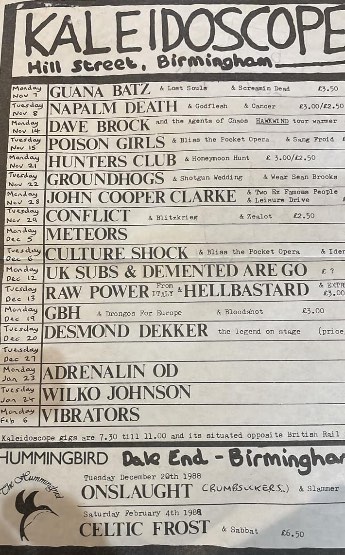 KALEIDOSCOPE
Hill Street, Birmingham
Monday Nov 7 GUANA BATZ & Lost Souls & Screamin Dead £3.50
Tuesday Nov 8 NAPALM DEATH & Godflesh & Cancer £3.00/£2.50
Monday Nov 14 DAVE BROCK and the Agents of Chaos HAWKWIND tour warmer
Tuesday Nov 15 POISON GIRLS & Bliss the Pocket Opera & Sang Froid £
Monday Nov 21 HUNTERS CLUB & Honeymoon Hunt £ 3.00/£2.50
Tuesday Nov 22 GROUNDHOGS & Shotgun Wedding & Wear Sean Brooks
Monday Nov 28 JOHN COOPER CLARKE & Two Ex Famous People & Leisure Drive
Tuesday Nov 29 CONFLICT & Blitzkrieg & Zealot £2.50
Monday Dec 5 METEORS
Tuesday Dec 6 CULTURE SHOCK & Bliss the Pocket Opera & Iden
Monday Dec 12 UK SUBS & DEMENTED ARE GO £ ?
Tuesday Dec 13 RAW POWER From ITALY & HELLBASTARD & EXTR £3.00
Monday Dec 19 GBH & Drongos For Europe & Bloodshot £3.00
Tuesday Dec 20 DESMOND DEKKER the legend on stage (price
Tuesday Dec 27
Monday Jan 23 ADRENALIN OD
Tuesday Jan 24 WILKO JOHNSON
Monday Feb 6 VIBRATORS
Kaleidoscope gigs are 7.30 till 11.00 and its situated opposite British Rail
HUMMINGBIRD Dale End - Birmingham
The Hummingbird
Tuesday December 20th 1988
ONSLAUGHT (CRUMBSUCKERS..) & Slammer
Saturday February 4th 1989
CELTIC FROST & Sabbat £6.50